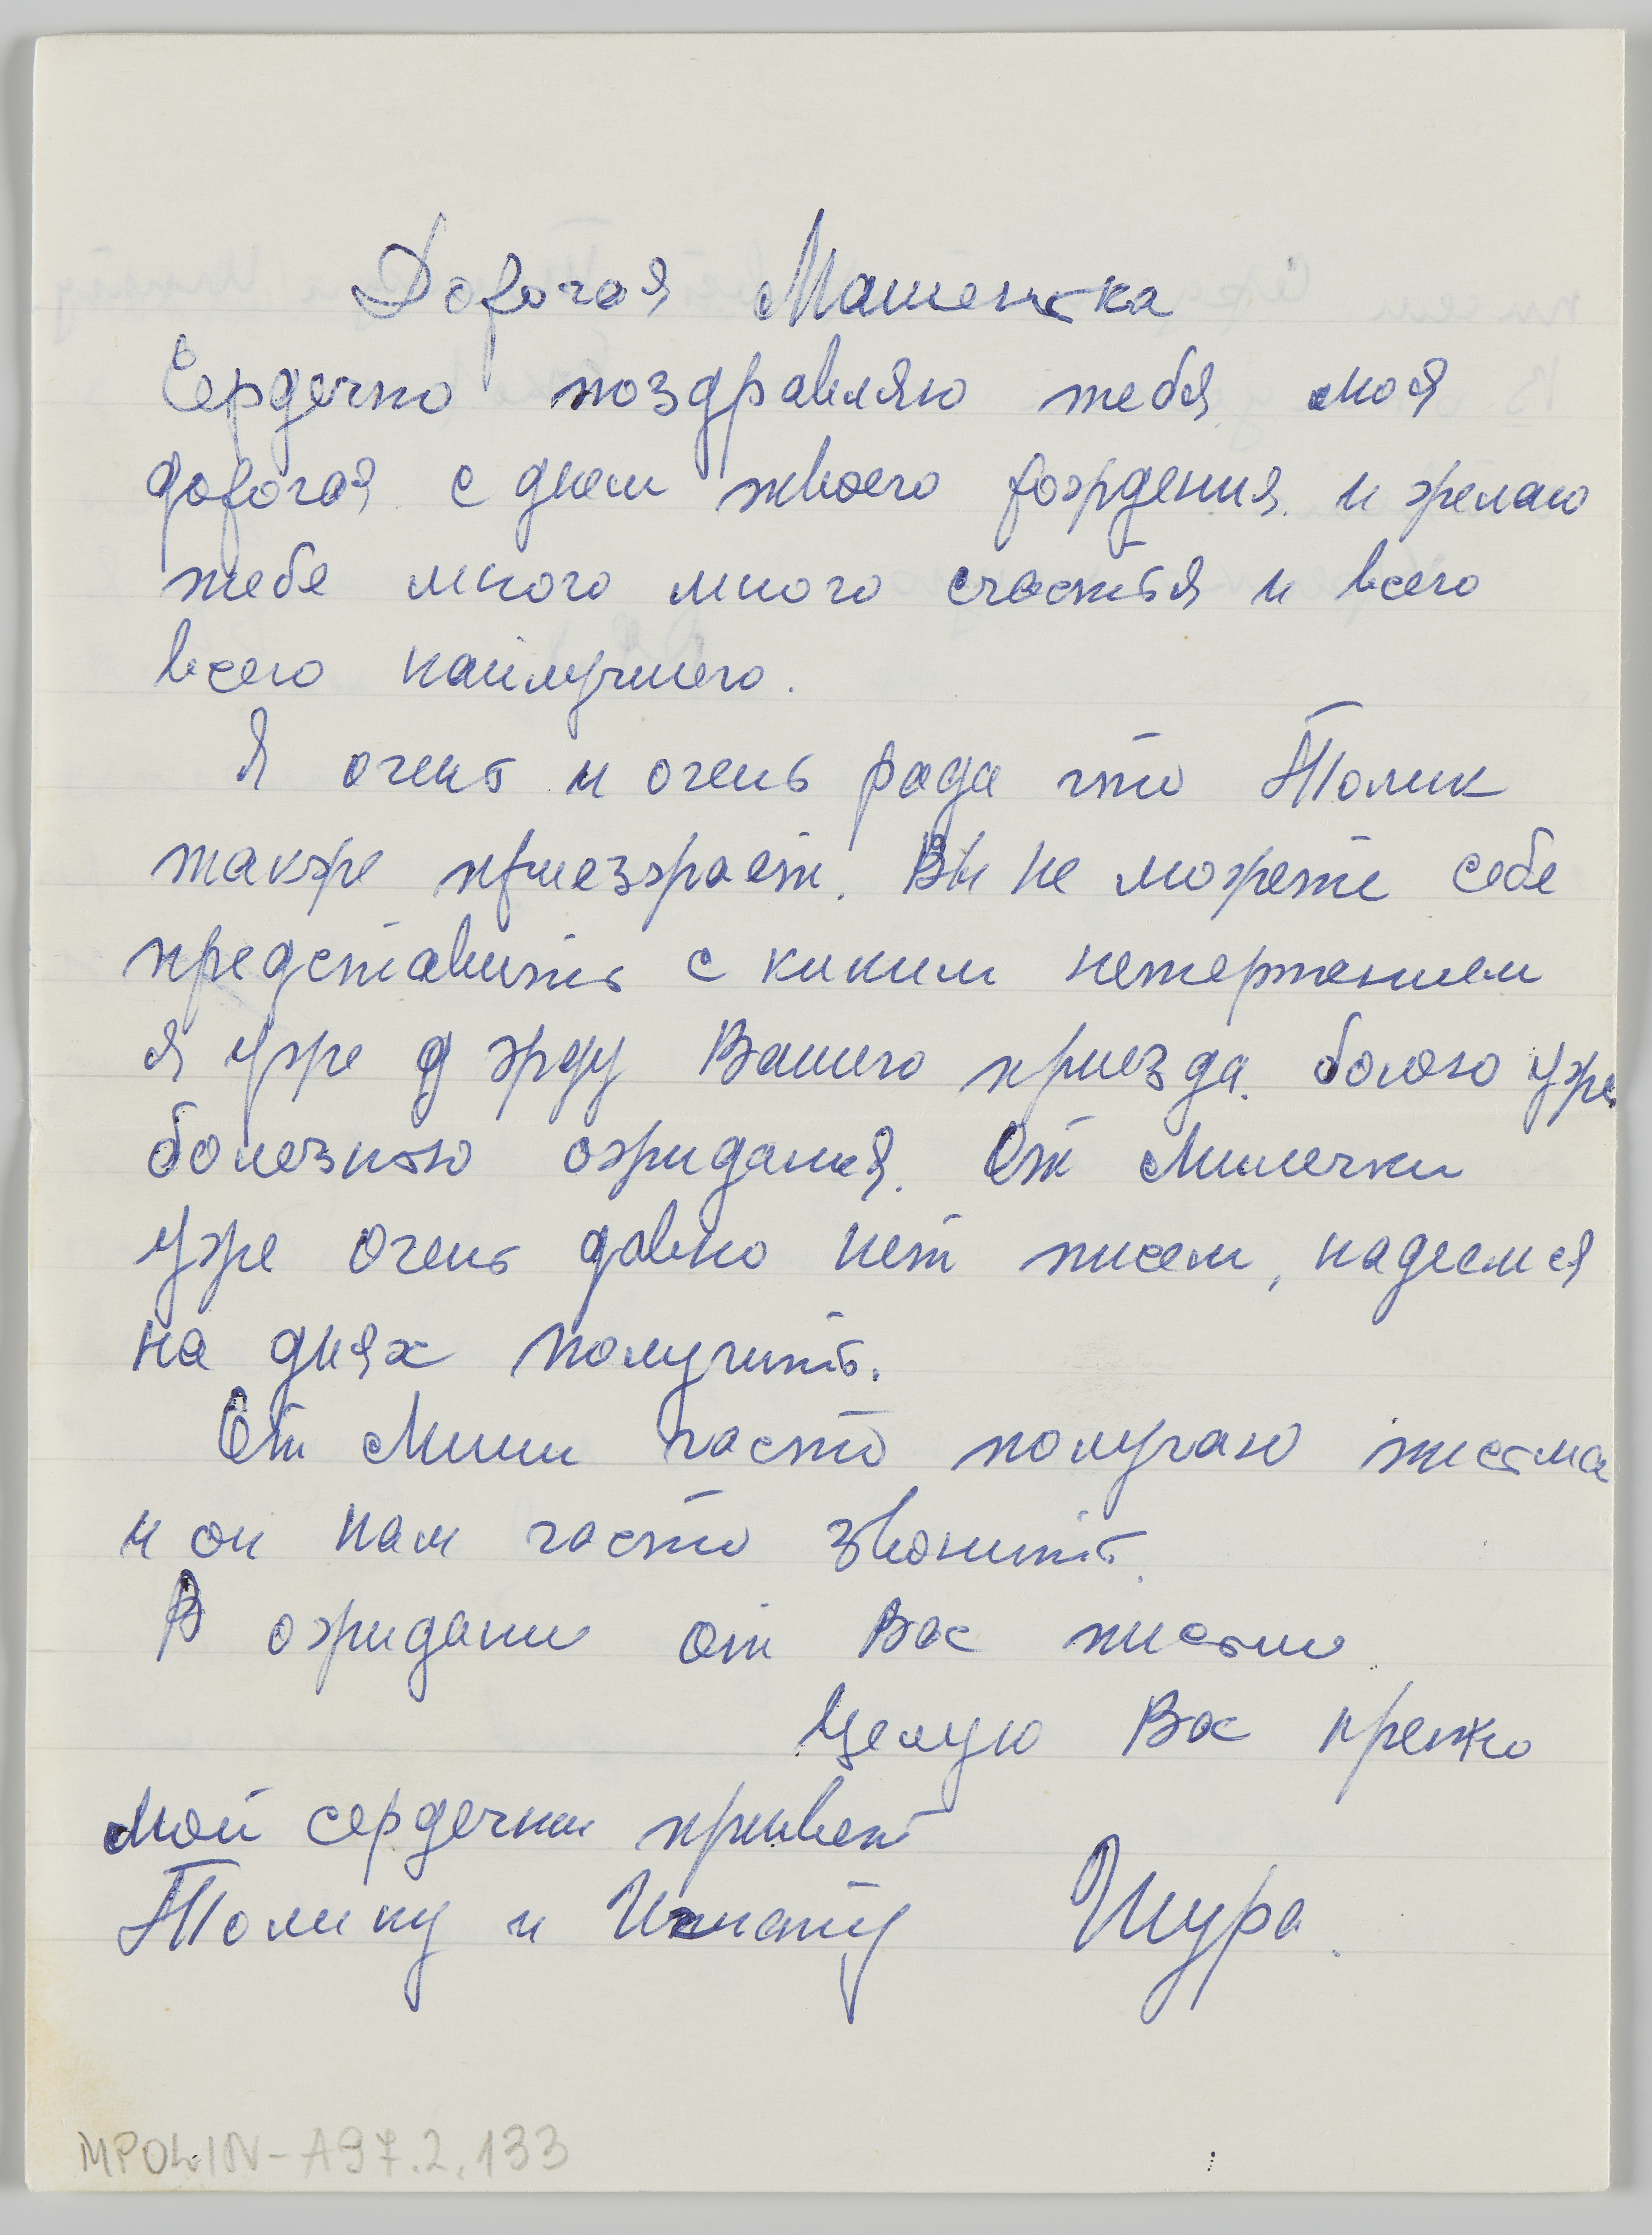 Дорогая Машенька
Сердечно поздравляю тебя моя
дорогая с днем твоего рождения и желаю
тебе много много счастья и всего
всего наилучшего.
Я очень и очень рада что Толик
также приезжает. Вы не можете себе
представить с каким нетерпением
я уже жду Вашего приезда. болею уже
болезнью ожидания. От Милечки
уже очень давно нет писем, надеемся
на днях получить.
От Миши часто получаю письма
и он нам часто звонить.
В ожидании от Вас письма
Целую Вас крепко
Мой сердечный привет
Толику и Игнату Шура.
MPOLIN-A97.2.133